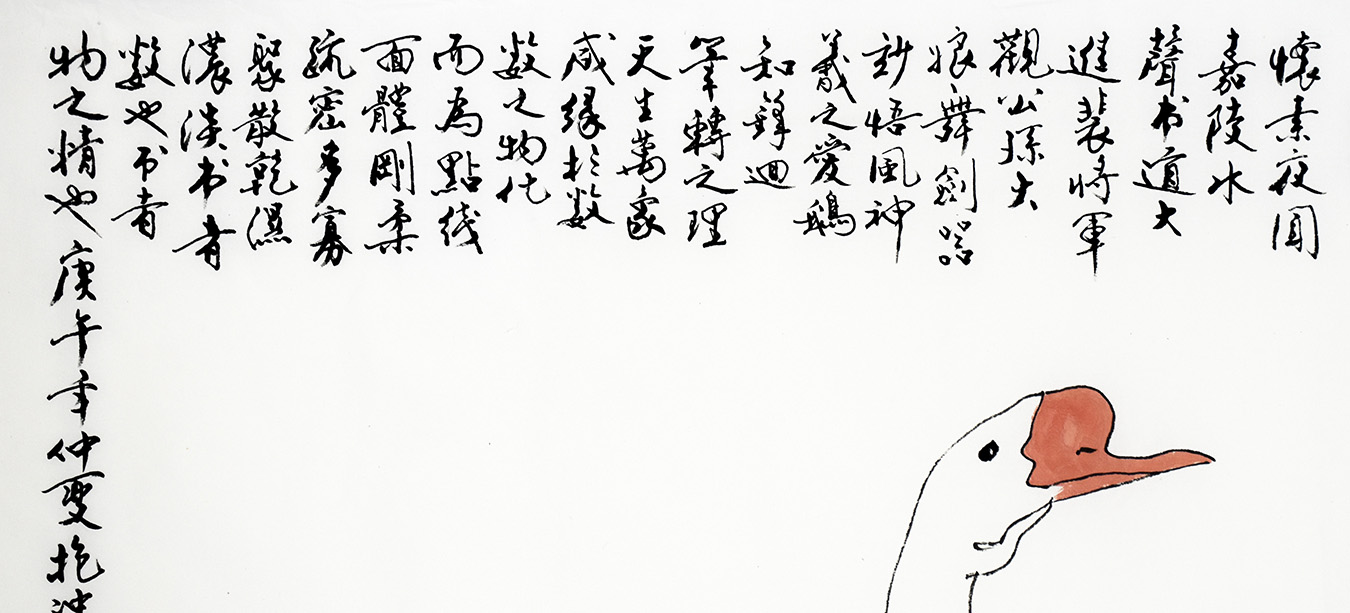 懷素夜聞
嘉陵水
聲书道大
進裴将軍
觀公孫大
娘舞劍器
妙悟風神
羲之愛鵝
知鋒迴
筆轉之理
天生萬象
咸緣於数
数之物化
而為點线
面體剛柔
疏密多寡
聚散乾濕
濃淡书者
数也书者
物之情也庚午年仲夏抱